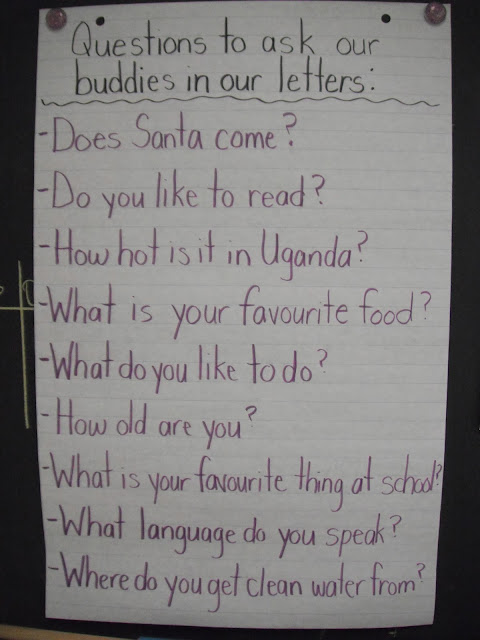 Questions to ask our
buddies in our letters:
-Does Santa come?
-Do you like to read?
-How hot is it in Uganda?
-What is your favourite food?
-What do you like to do?
-How old are you?
-What is your favourite thing at school?
-What language do you speak?
-Where do you get clean water from?